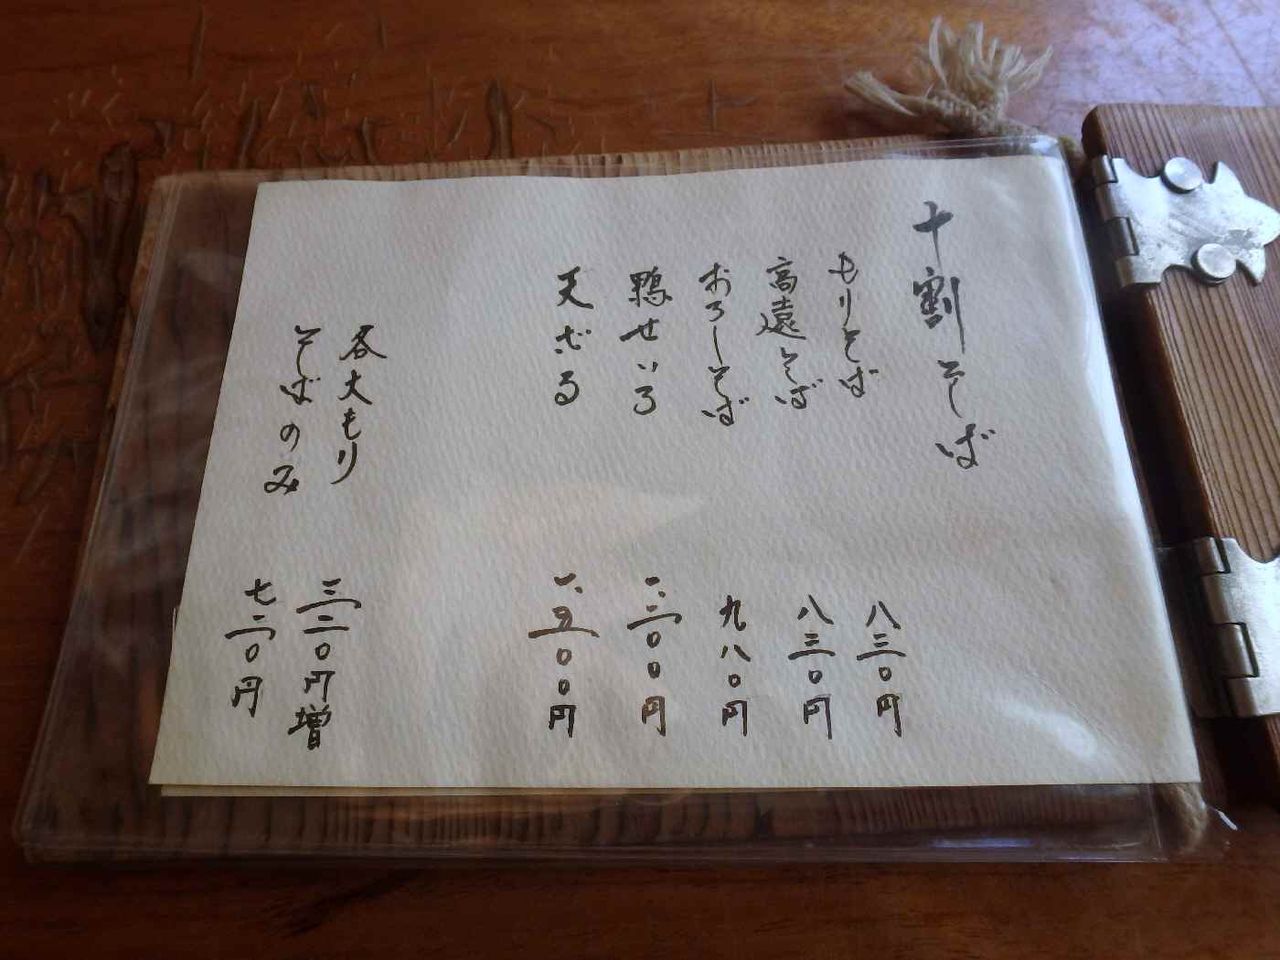 十割そば
もりそば 八三〇円
高遠そば 八三〇円
おろしそば 九八〇円
鴨せいろ 一、二〇〇円
天ざる 一、五〇〇円
各大もり 三二〇円増
そばのみ 七二〇円